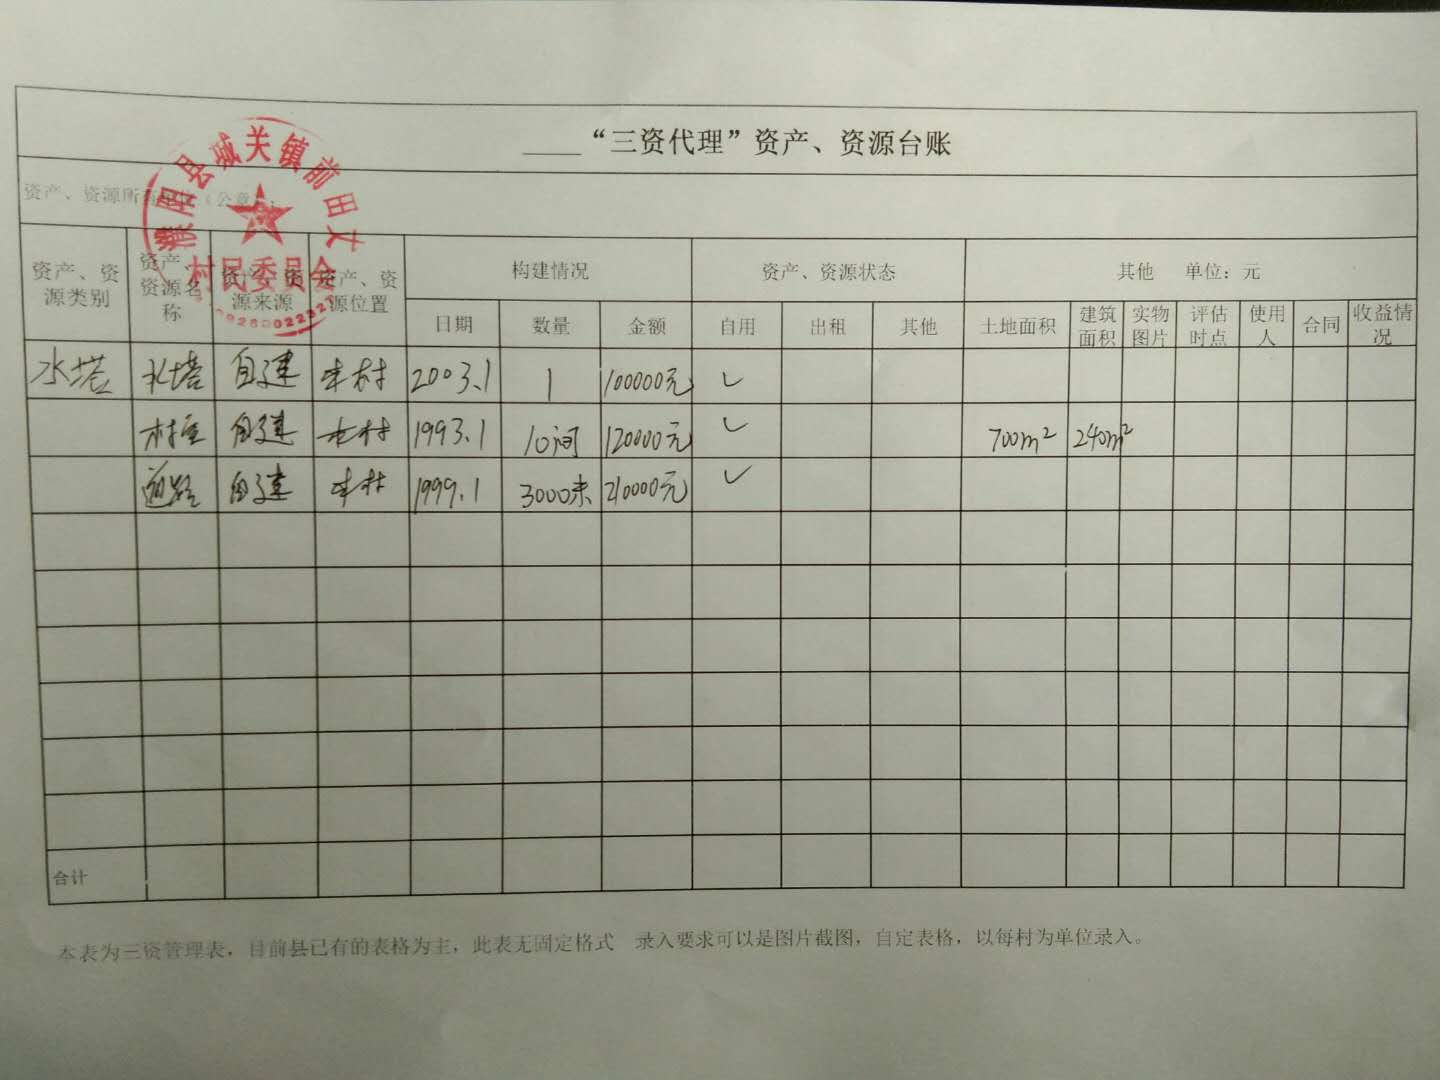 “三资代理”资产、资源台账
资产、资源所有单位（公章）：
濮阳县城关镇前田丈
村民委员会
资产、资源类别 资产、资源名称 资产、资源来源 资产、资源位置 构建情况 资产、资源状态 其他 单位：元
日期 数量 金额 自用 出租 其他 土地面积 建筑面积 实物图片 评估时点 使用人 合同 收益情况
水塔 水塔 自建 本村 2003.1 1 100000元 ✓
村室 自建 本村 1993.1 10间 120000元 ✓ 700m² 240m²
道路 自建 本村 1999.1 3000米 210000元 ✓
合计
本表为三资管理表，目前县已有的表格为主，此表无固定格式 录入要求可以是图片截图，自定表格，以每村为单位录入。